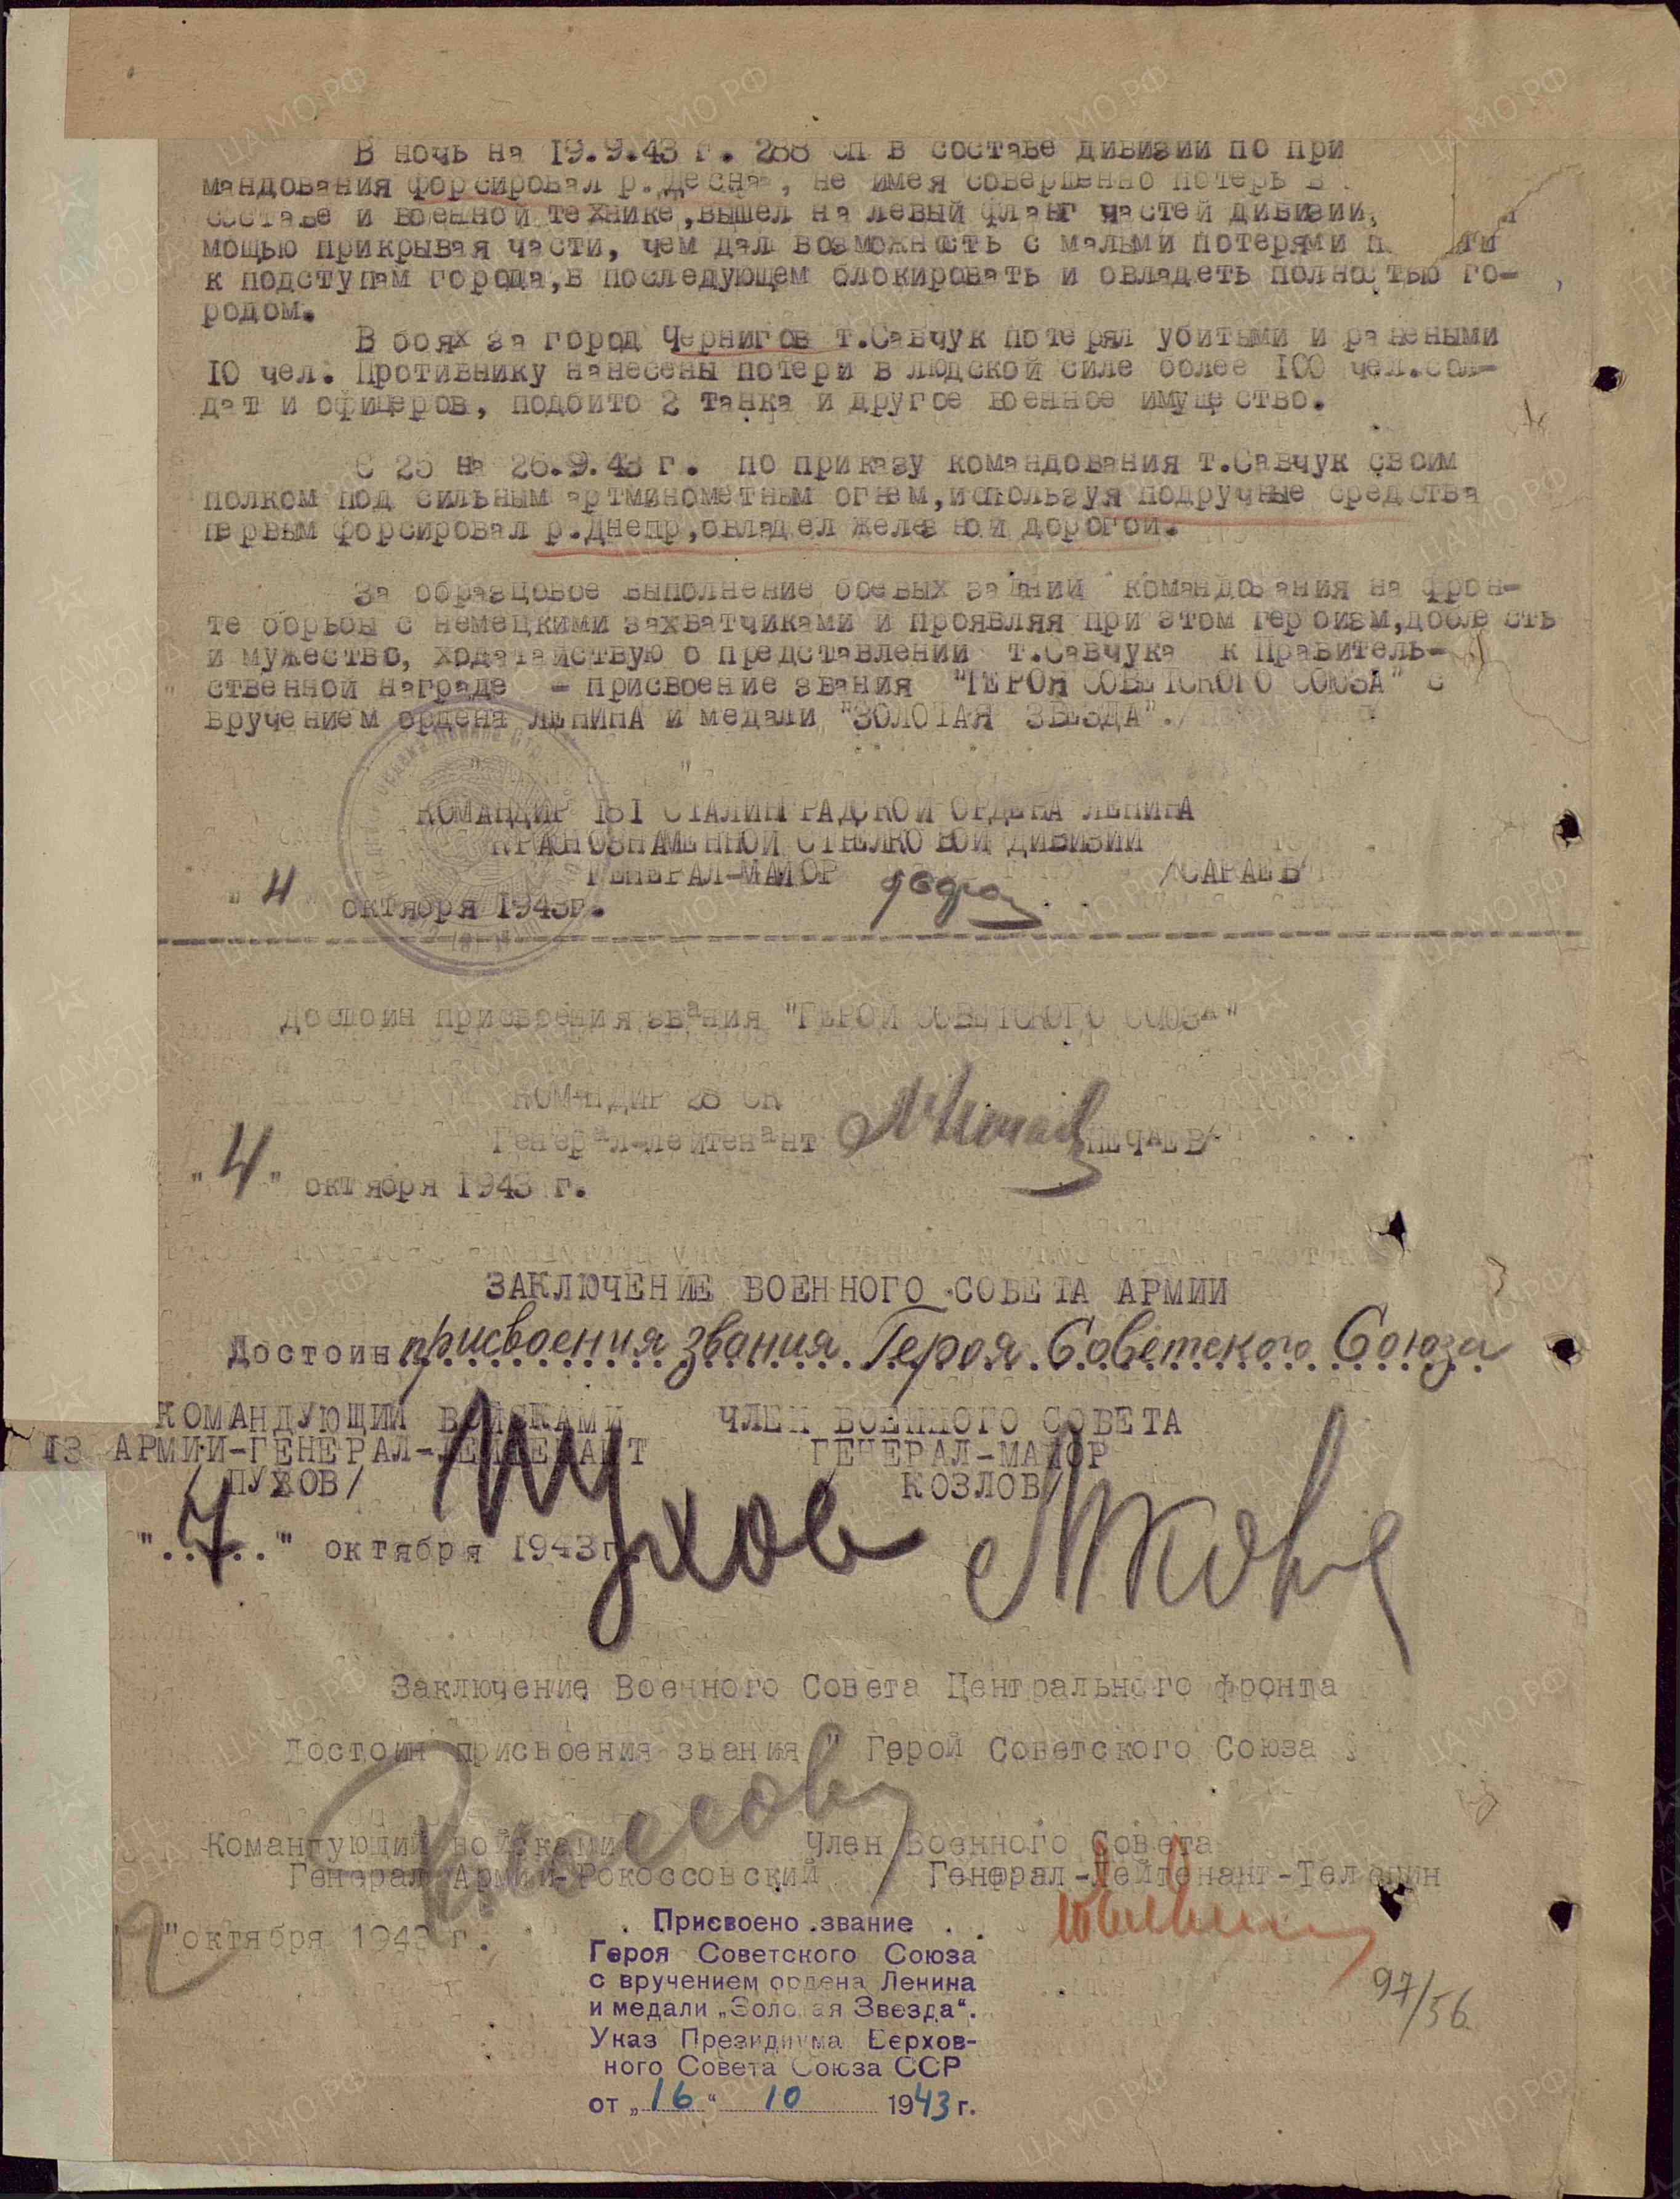 В ночь на 19.9.43 г. 288 сп в составе дивизии по при
мандования форсировал р.Десна, не имея совершенно потерь в
составе и военной технике,вышел на левый фланг частей дивизии,
мощью прикрывая части, чем дал возможность с малыми потерями п
к подступам города,в последующем блокировать и овладеть полностью го-
родом.
В боях за город Чернигов т.Савчук потерял убитыми и ранеными
10 чел. Противнику нанесены потери в людской силе более 100 чел.сол-
дат и офицеров, подбито 2 танка и другое военное имущество.
С 25 на 26.9.43 г. по приказу командования т.Савчук своим
полком под сильным артминометным огнем,используя подручные средства
первым форсировал р.Днепр,овладел железной дорогой.
За образцовое выполнение боевых заданий командования на фрон-
те борьбы с немецкими захватчиками и проявляя при этом героизм,доблесть
и мужество, ходатайствую о представлении т.Савчука к Правитель-
ственной награде - присвоение звания "ГЕРОЯ СОВЕТСКОГО СОЮЗА" с
вручением ордена ЛЕНИНА и медали "ЗОЛОТАЯ ЗВЕЗДА".
КОМАНДИР 181 СТАЛИНГРАДСКОЙ ОРДЕНА ЛЕНИНА
КРАСНОЗНАМЕННОЙ СТРЕЛКОВОЙ ДИВИЗИИ
ГЕНЕРАЛ-МАЙОР /САРАЕВ/
"4" октября 1943г.
Достоин присвоения звания "ГЕРОЙ СОВЕТСКОГО СОЮЗА"
КОМАНДИР 28 СК
Генерал-лейтенант НЕЧАЕВ/
"4" октября 1943 г.
ЗАКЛЮЧЕНИЕ ВОЕННОГО СОВЕТА АРМИИ
Достоин присвоения звания Героя Советского Союза
КОМАНДУЮЩИЙ ВОЙСКАМИ ЧЛЕН ВОЕННОГО СОВЕТА
13 АРМИИ-ГЕНЕРАЛ-ЛЕЙТЕНАНТ ГЕНЕРАЛ-МАЙОР
/ПУХОВ/ КОЗЛОВ/
Пухов
"..7.." октября 1943г.
Заключение Военного Совета Центрального фронта
Достоин присвоения звания " Герой Советского Союза "
Командующий войсками Член Военного Совета
Генерал Армии-Рокоссовский Генерал-Лейтенант-Телегин
12 "октября 1943 г.
Присвоено звание
Героя Советского Союза
с вручением ордена Ленина
и медали „Золотая Звезда“.
Указ Президиума Верхов-
ного Совета Союза ССР
от „16“ 10 1943 г.
97/56
ЦА МО РФ
ПАМЯТЬ НАРОДА